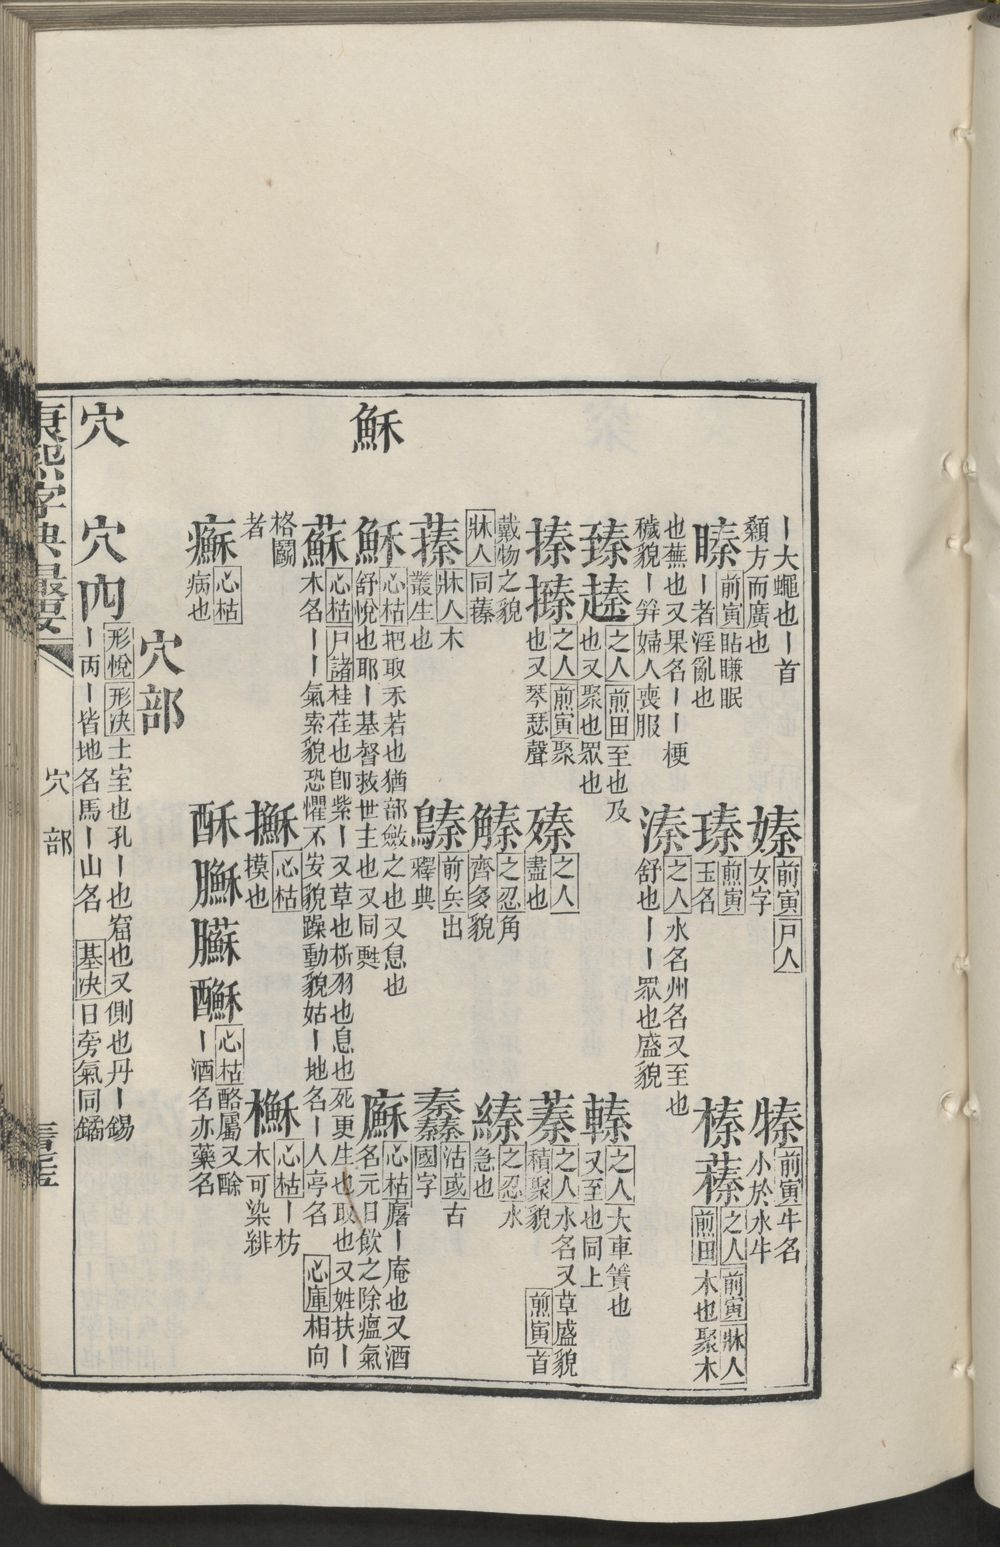 丨大蠅也丨首
顙方而廣也
嫀 前寅 尸人
女字
前寅 牛名
小於水牛
前寅 貼膁眠
丨者淫亂也
瑧 煎寅
玉名
榛 之人 前寅 牀人
煎田 木也聚木
也蕪也又果名丨丨梗
穢貌丨笄婦人喪服
溱 之人 水名州名又至也
舒也丨丨眾也盛貌
臻 之人 煎田 至也及
也又聚也眾也
轃 之人 大車簀也
又至也同上
搸 之人 煎寅 聚
也又琴瑟聲
之人
盡也
蓁 之人 水名又草盛貌
積聚貌 煎寅 首
戴物之貌
牀人 同蓁
之忍 角
齊多貌
縥 之忍 水
急也
牀人 木
叢生也
前兵 出
釋典
沽或 古
國字
穌
穌 心枯 把取禾若也猶部斂之也又息也
舒悅也耶丨基督救世主也又同甦
心枯 廜丨庵也又酒
名元日飲之除瘟氣
蘇 心枯 尸諸 桂荏也卽紫丨又草也析羽也息也死更生也取也又姓扶丨
木名丨丨氣索貌恐懼不安貌躁動貌姑丨地名丨人亭名 心庫 相向
格鬭
者
心枯
摸也
櫯 心枯 丨枋
木可染緋
心枯
病也
酥 心枯 酪屬又酴
丨酒名亦藥名
穴部
穴
穴內 形悅 形决 土室也孔丨也窟也又側也丹丨錫
丨丙丨皆地名馬丨山名 基决 日旁氣同鐍
康熙字典最要
穴部